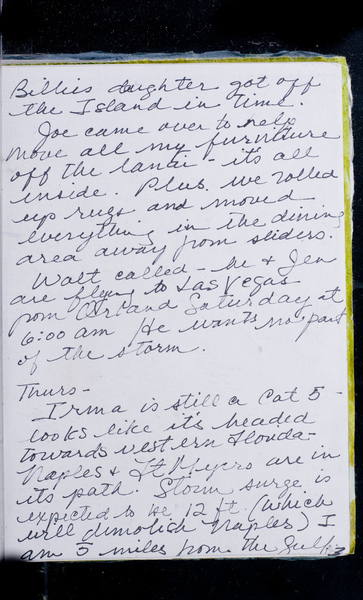 Billies daughter got off
the Island in time.
Joe came over to help
move all my furniture
off the lanai - it's all
inside. Plus we rolled
up rugs and moved
everything in the dining
area away from sliders.
Walt called - he & Jen
are flying to Las Vegas
from Orland Saturday at
6:00 am He wants no part
of the storm.
Thurs-
Irma is still a Cat 5 -
looks like it's headed
towards western Florida-
Naples & Ft Myers are in
its path. Storm surge is
expected to be 12 ft. (which
will demolish Naples) I
am 5 miles from the Gulf